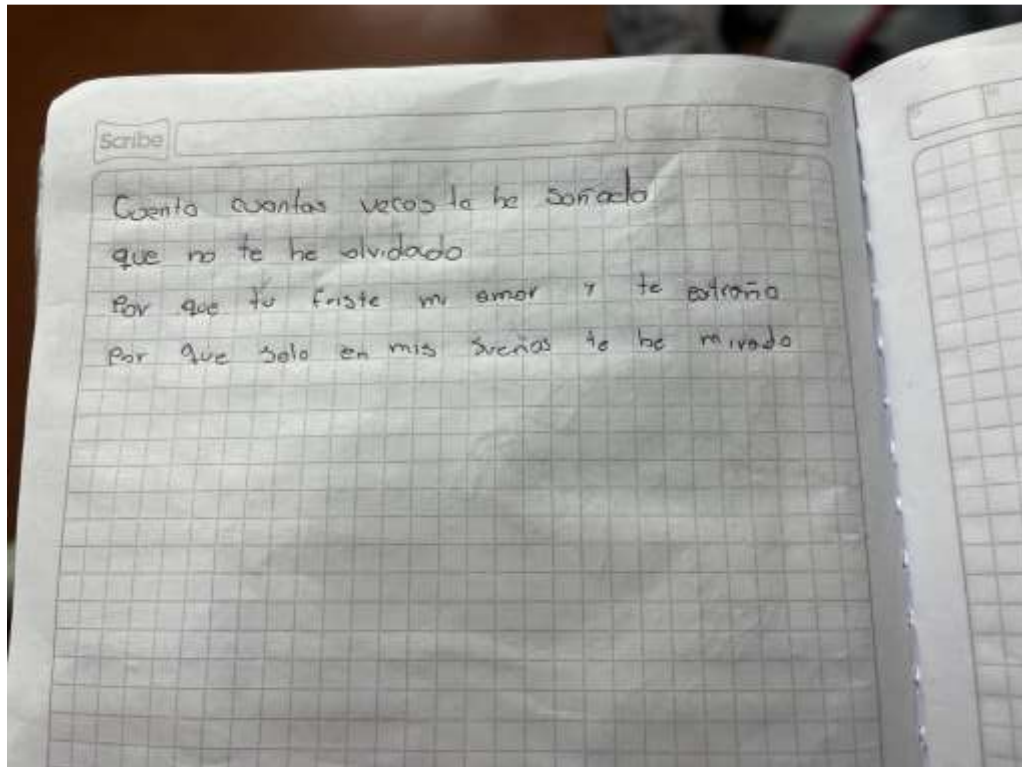 Scribe
Cuento cuantas veces te he soñado
que no te he olvidado
Por que tu fuiste mi amor y te extraño
Por que solo en mis sueños te he mirado